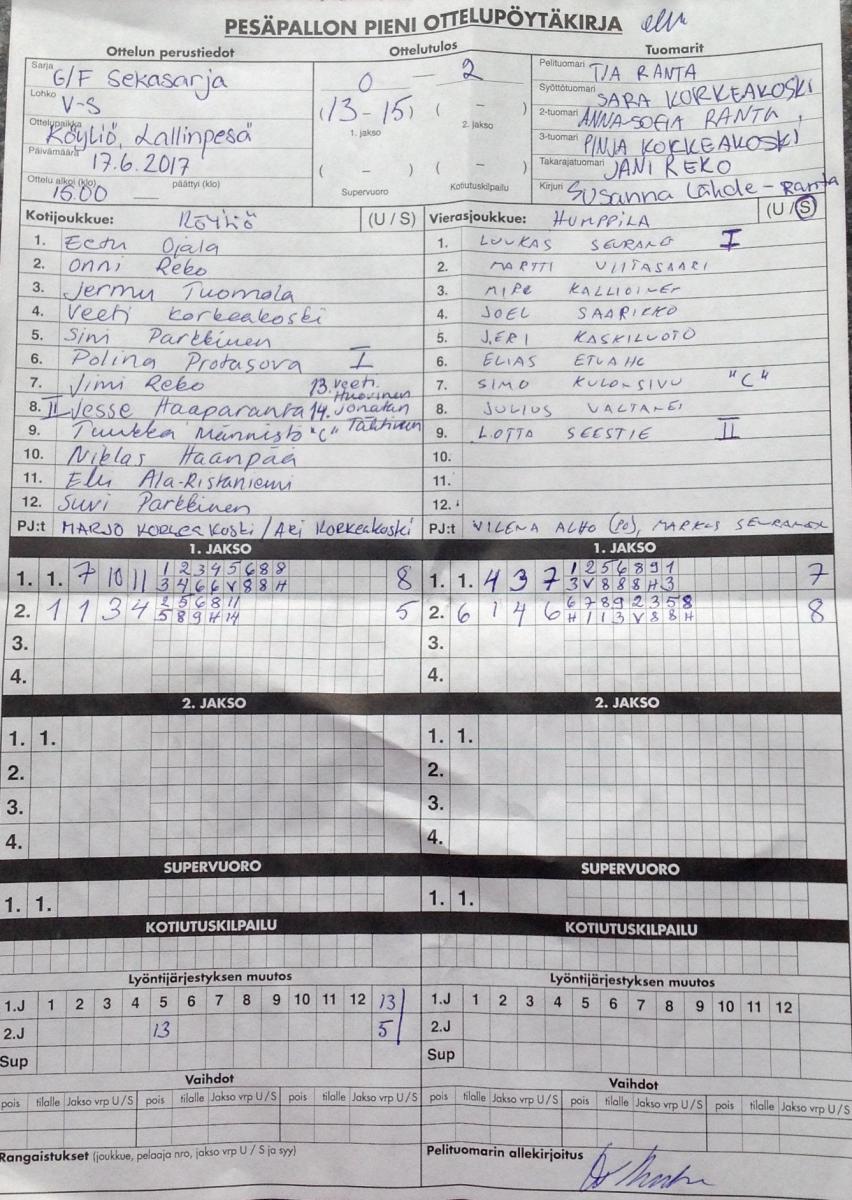 PESÄPALLON PIENI OTTELUPÖYTÄKIRJA
Ottelun perustiedot
Sarja G/F Sekasarja
Lohko V-S
Ottelupaikka Köyliö, Lallinpesä
Päivämäärä 17.6.2017
Ottelu alkoi (klo) päättyi (klo)
Ottelutulos
0 - 2
(13-15) ( - )
1. jakso 2. jakso
( - ) ( - )
Supervuoro Kotiutuskilpailu
Tuomarit
Pelituomari TIA RANTA
Syöttötuomari SARA KORKEAKOSKI
2-tuomari ANNA-SOFIA RANTA
3-tuomari PINJA KORKEAKOSKI
Takarajatuomari JANI REKO
Kirjuri Susanna Lähde-Ranta
Kotijoukkue: Köyliö (U / S)
1. Eetu Ojala
2. Onni Reko
3. Jermu Tuomola
4. Veeti Korkeakoski
5. Sini Parkkinen
6. Polina Protasova I
7. Jimi Reko 13. Veeti Huovinen
8. II Jesse Haaparanta 14. Jonatan Tähtinen
9. Tuukka Männistö "C"
10. Niklas Haanpää
11. Elli Ala-Ristaniemi
12. Suvi Parkkinen
PJ:t MARJO KORKEAKOSKI / ARI KORKEAKOSKI
Vierasjoukkue: HUMPPILA (U / S)
1. LUUKAS SEURANEN I
2. MARTTI VIITASAARI
3. KALLIOINEN
4. JOEL SAARIKKO
5. JERI KASKILUOTO
6. ELIAS
7. SIMO KULONSIVU "C"
8. JULIUS
9. LOTTA SEESTIE II
10.
11.
12.
PJ:t VILENA ALHO (PJ), MARKUS SEURANEN
1. JAKSO
1. 1. 7 10 11 1 2 3 4 5 6 8 8 8
3 4 6 6 V 8 8 H
2. 1 1 3 4 2 5 6 8 11 5
5 8 9 H 14
3.
4.
1. JAKSO
1. 1. 4 3 7 1 2 5 6 8 9 1 7
3 V 8 8 8 H 3
2. 6 1 4 6 6 7 8 9 2 3 5 8 8
H 1 1 3 V 8 8 H
3.
4.
2. JAKSO
1. 1.
2.
3.
4.
2. JAKSO
1. 1.
2.
3.
4.
SUPERVUORO
1. 1.
SUPERVUORO
1. 1.
KOTIUTUSKILPAILU
KOTIUTUSKILPAILU
Lyöntijärjestyksen muutos
1.J 1 2 3 4 5 6 7 8 9 10 11 12 13
2.J 13 5
Sup
Lyöntijärjestyksen muutos
1.J 1 2 3 4 5 6 7 8 9 10 11 12
2.J
Sup
Vaihdot
pois tilalle Jakso vrp U / S pois tilalle Jakso vrp U / S pois tilalle Jakso vrp U / S
Vaihdot
pois tilalle Jakso vrp U / S pois tilalle Jakso vrp U / S pois tilalle Jakso vrp U / S
Rangaistukset (joukkue, pelaaja nro, jakso vrp U / S ja syy)
Pelituomarin allekirjoitus